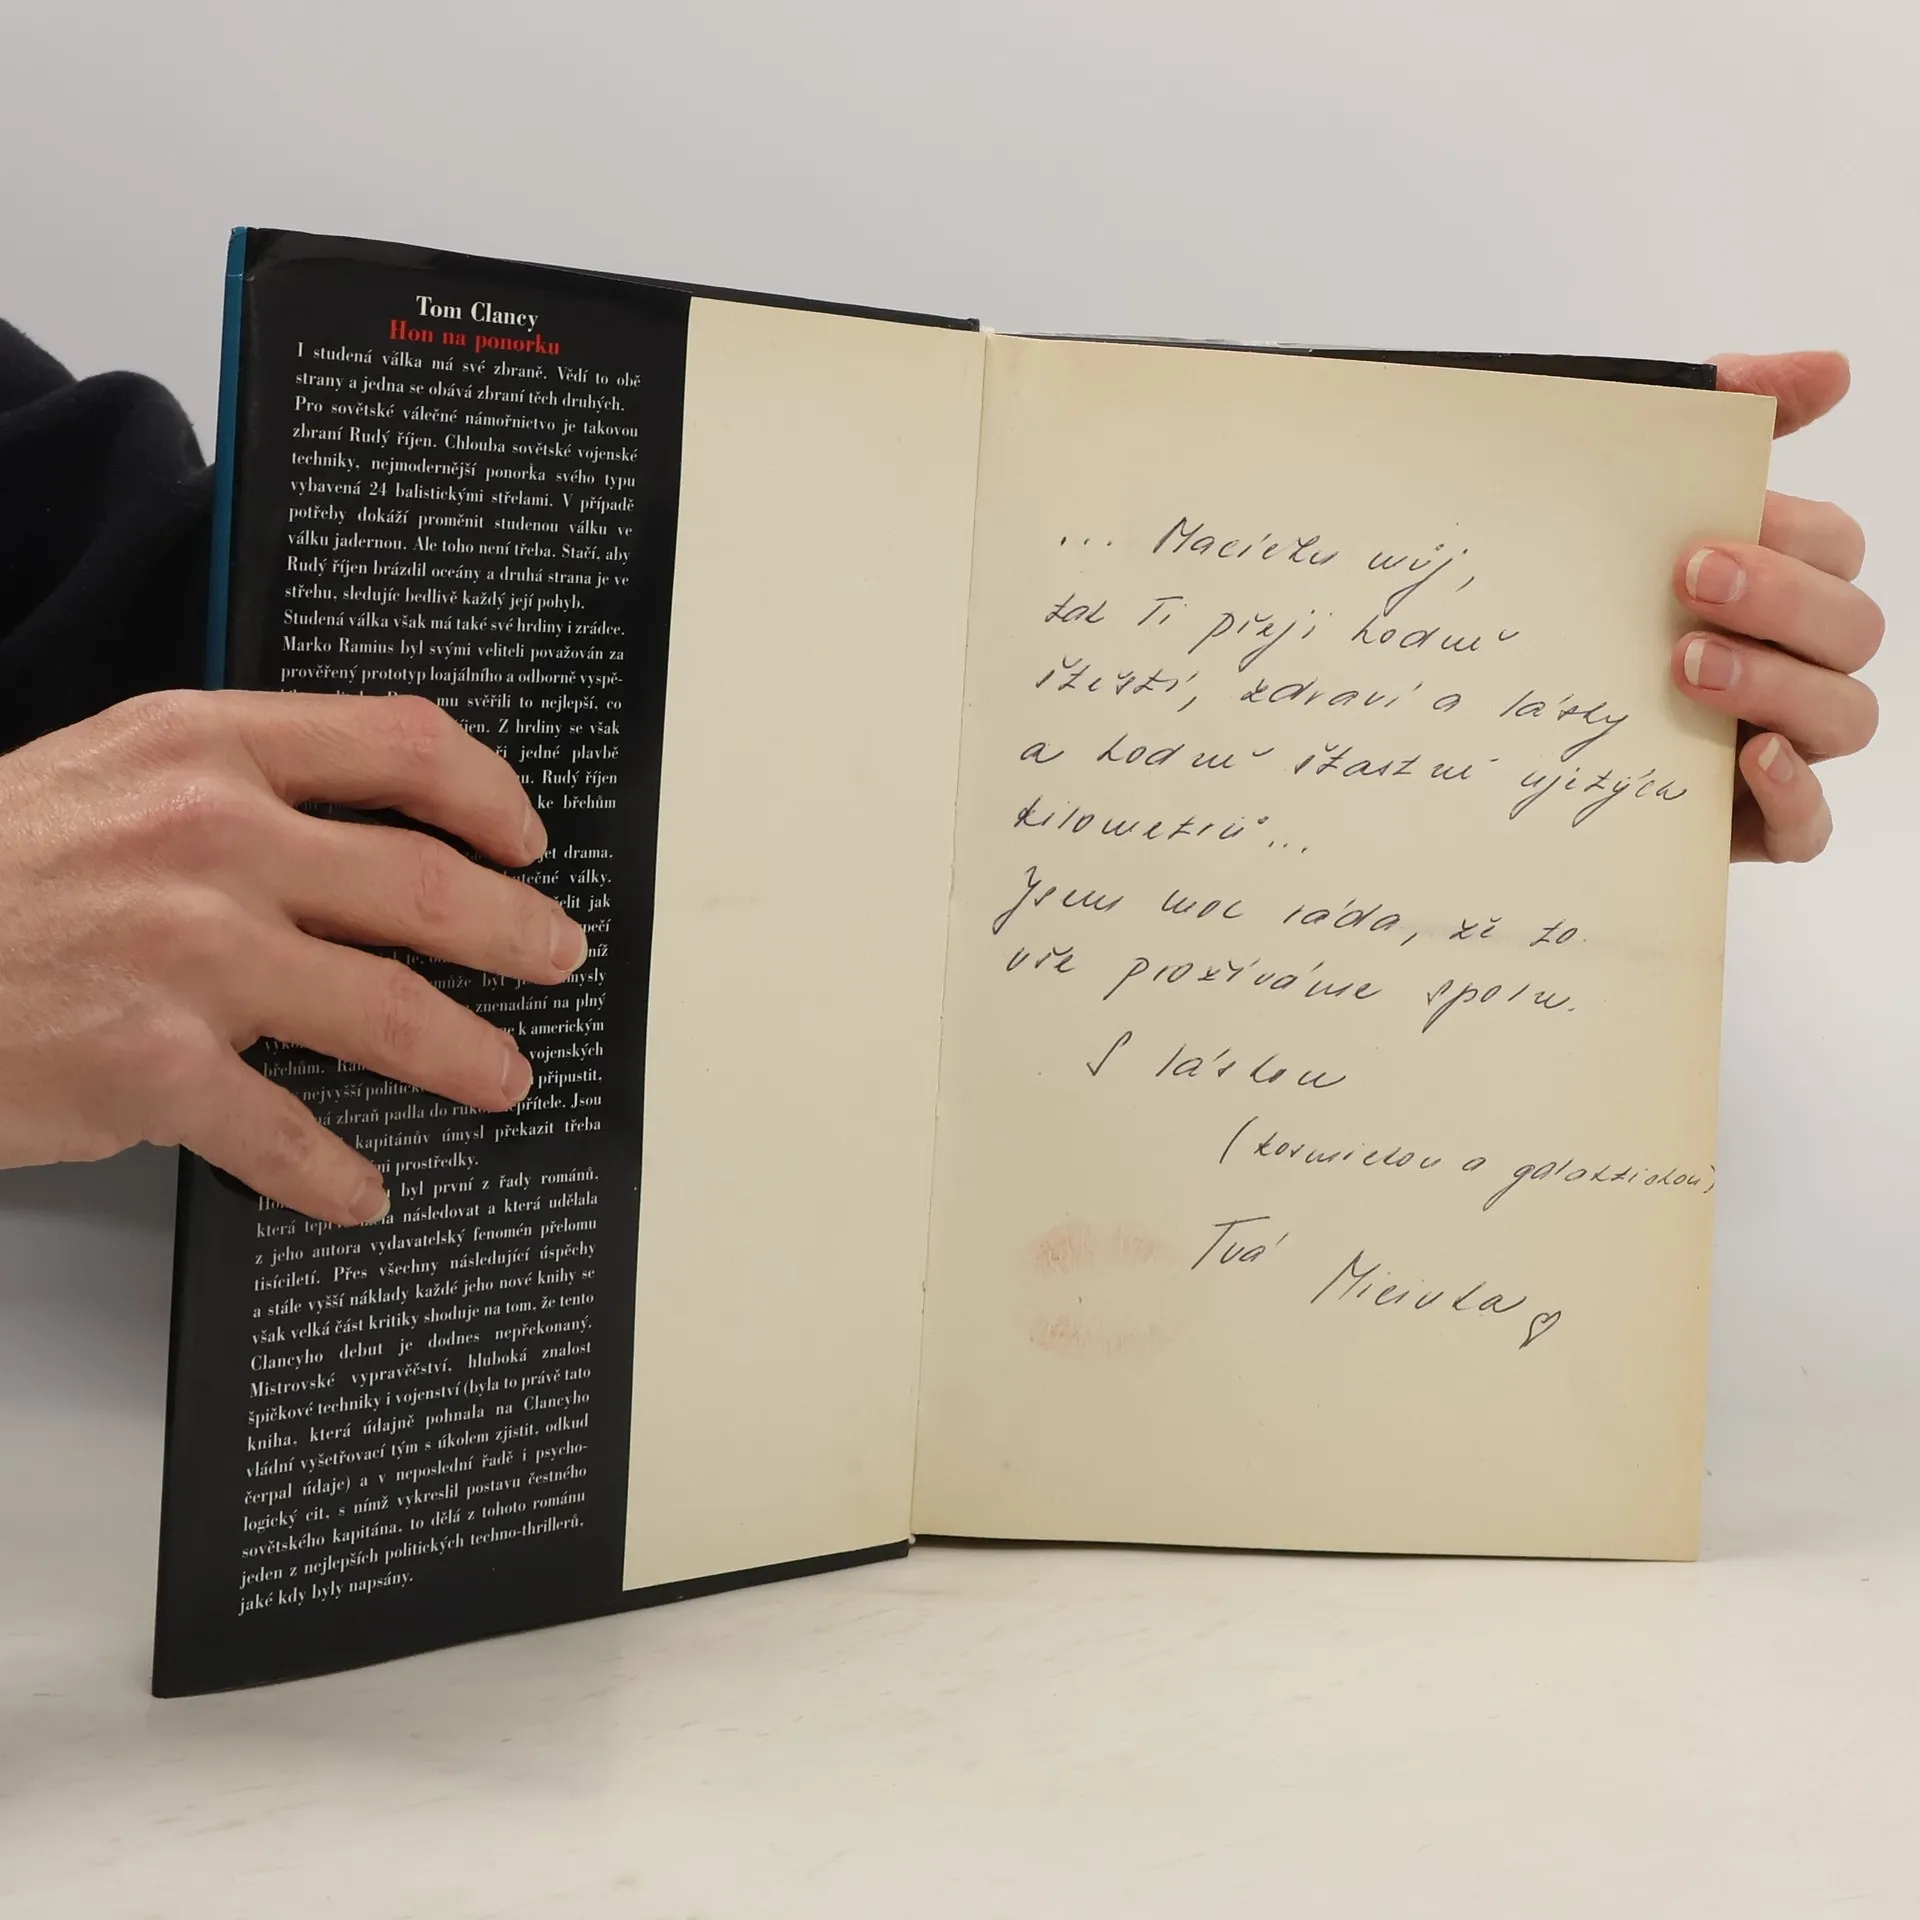 Tom Clancy
Hon na ponorku
I studená válka má své zbraně. Vědí to obě
strany a jedna se obává zbraní těch druhých.
Pro sovětské válečné námořnictvo je takovou
zbraní Rudý říjen. Chlouba sovětské vojenské
techniky, nejmodernější ponorka svého typu
vybavená 24 balistickými střelami. V případě
potřeby dokáží proměnit studenou válku ve
válku jadernou. Ale toho není třeba. Stačí, aby
Rudý říjen brázdil oceány a druhá strana je ve
střehu, sledujíc bedlivě každý její pohyb.
Studená válka však má také své hrdiny i zrádce.
Marko Ramius byl svými veliteli považován za
prověřený prototyp loajálního a odborně vyspě-
mu svěřili to nejlepší, co
Z hrdiny se však
jedné plavbě
Rudý říjen
ke břehům
drama.
války.
jak
znenadání na plný
k americkým
břehům.
vojenských
nejvyšší
připustit,
zbraň padla do
Jsou
kapitánův úmysl překazit třeba
prostředky.
byl první z řady románů,
která
následovat a která udělala
z jeho autora vydavatelský fenomén přelomu
tisíciletí. Přes všechny následující úspěchy
a stále vyšší náklady každé jeho nové knihy se
však velká část kritiky shoduje na tom, že tento
Clancyho debut je dodnes nepřekonaný.
Mistrovské vypravěčství, hluboká znalost
špičkové techniky i vojenství (byla to právě tato
kniha, která údajně pohnala na Clancyho
vládní vyšetřovací tým s úkolem zjistit, odkud
čerpal údaje) a v neposlední řadě i psycho-
logický cit, s nímž vykreslil postavu čestného
sovětského kapitána, to dělá z tohoto románu
jeden z nejlepších politických techno-thrillerů,
jaké kdy byly napsány.
... Macíčku můj,
tak Ti přeji hodně
štěstí, zdraví a lásky
a hodně šťastně ujetých
kilometrů...
Jsem moc ráda, že to
vše prožíváme spolu.
S láskou
(kosmickou a galaktickou)
Tvá
Micinka ♡